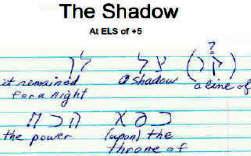 The Shadow
At ELS of +5
?
לן צל
it remained for a night a shadow a line of
הכח כסא
the power (upon) the throne of